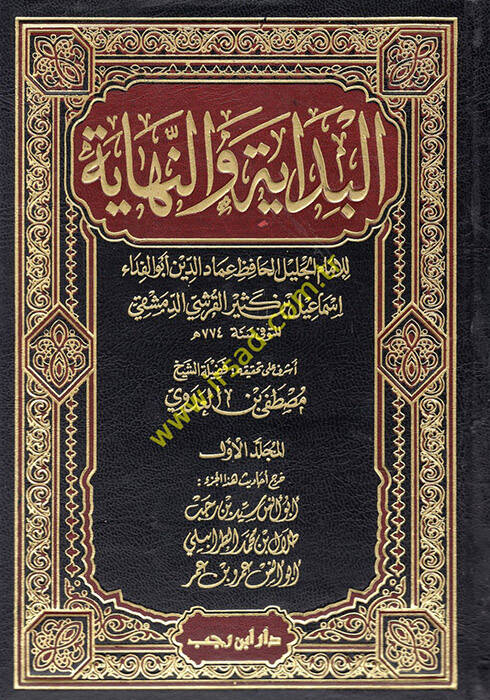 البِدَايَة وَالنِّهَايَة
للإمام الجليل الحافظ عماد الدين أبو الفداء
إسماعيل بن كثير القرشي الدمشقي
المتوفى سنة ٧٧٤ هـ
أشرف على تحقيقه فضيلة الشيخ
مصطفى بن العدوي
المجلد الأول
خرج أحاديث هذا الجزء :
أبو الحسن سيد بن رجب
طلال بن محمد الطرابيلي
عمرو بن عمر
دار ابن رجب